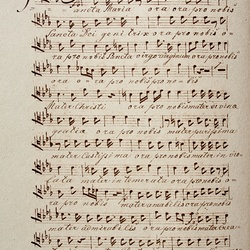 Sancta Maria ora ora pro nobis
Sancta Dei genitrix ora ora pro nobis o-
ra pro nobis Sancta virgo virginum ora pro nobis
ora o- ra pro nobis pro nobis
Mater Christi ora pro nobis mater divinæ
gratiæ ora pro nobis mater purissima
mater castissima ora pro nobis mater invio-
lata mater intemerata ora pro nobis o-
ra pro nobis mater amabilis ora pro nobis
mater admirabilis ora pro nobis mater crea-